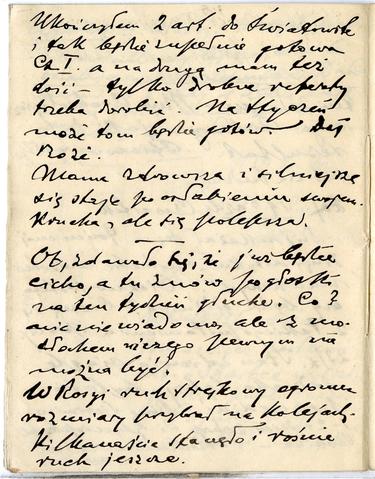 Ukończyłem 2 art. do Światowida
i tak będzie zupełnie gotowa
Cz I. a na drugą mam też
dość – tylko drobne reperaty
trzeba dorobić. Na styczeń
może tom będzie gotów. Daj
Boże.
Mama zdrowsza i silniejszą
się staje po osłabieniu swojem.
Krucha, ale się polepsza.
Ot, zdawało się, że już będzie
cicho, a tu znów pogłoski
na ten tydzień głuche. Co?
nic nie wiadomo, ale z
niczego pewnym nie
można być.
W Rosyi ruch strejkowy ogromne
rozmiary przybrał na kolejach.
Kilkanaście stanęło i rośnie
ruch jeszcze.